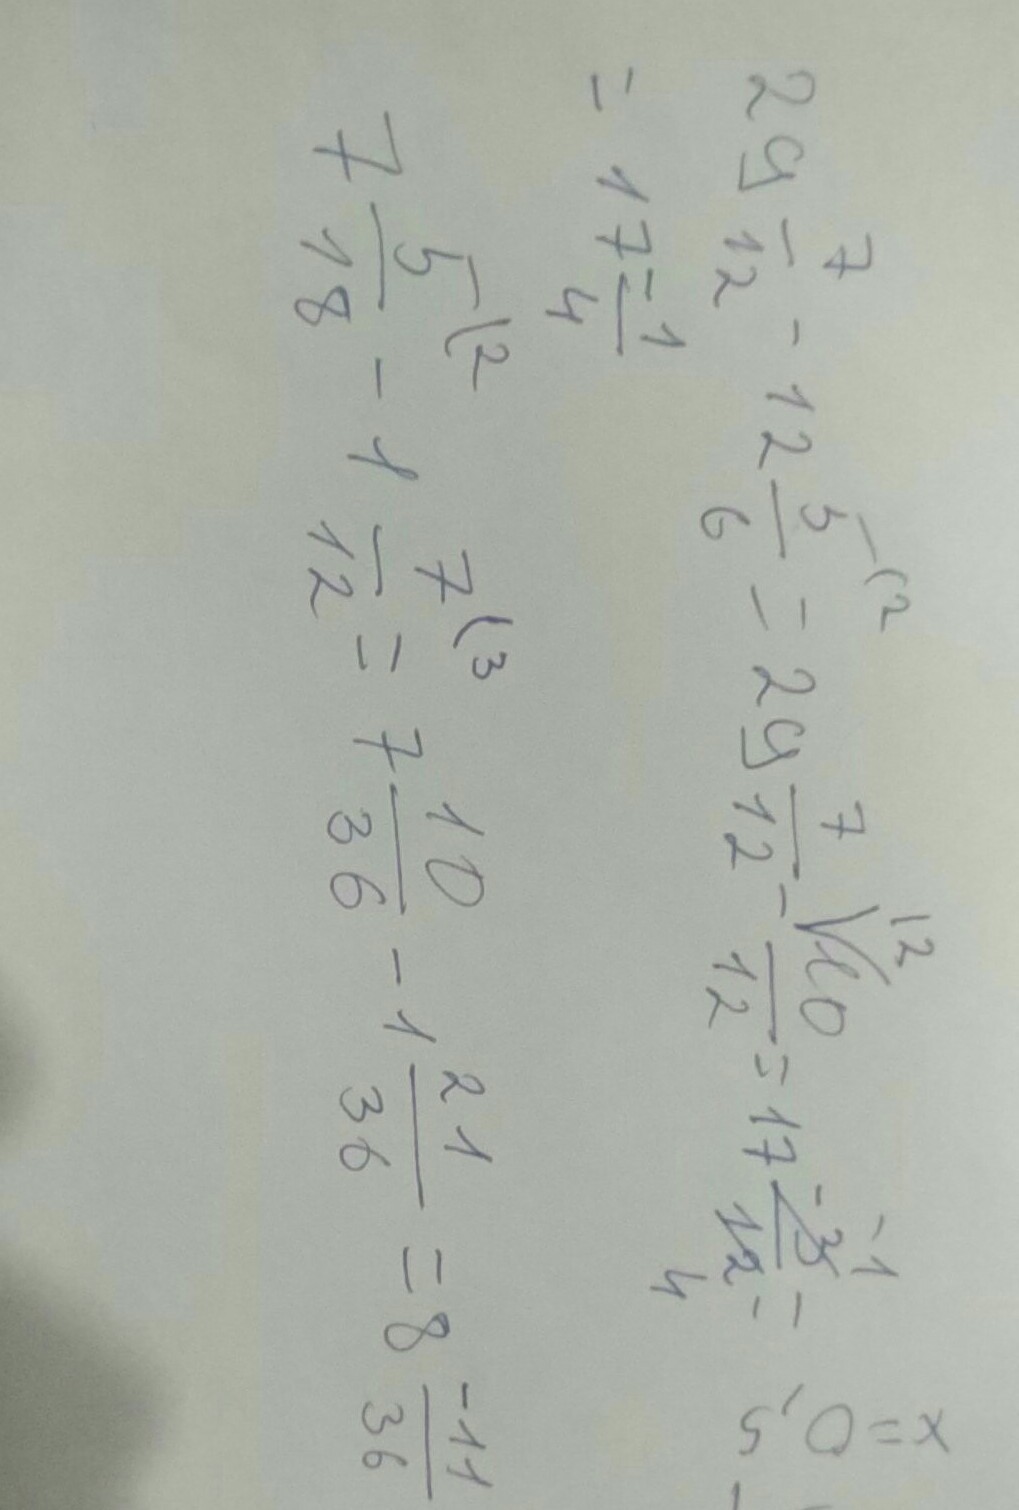 29 7/12 - 12 5/6 (2 = 29 7/12 - 12 10/12 = 17 -3/12 -1 4 =
= 17 -1/4
7 5/18 (2 - 1 7/12 (3 = 7 10/36 - 1 21/36 = 8 -11/36
x = 0,5